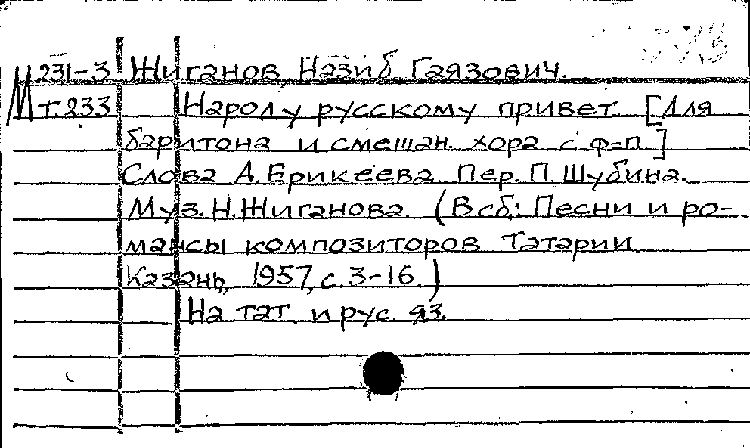 М 231-3 Жиганов Назиб Гаязович.
т.233 Народу русскому привет. [Для
баритона и смешан. хора с ф-п.]
Слова А. Ерикеева. Пер. П. Шубина.
Муз. Н. Жиганова. (В сб: Песни и ро-
мансы композиторов Татарии.
Казань, 1957, с. 3-16.)
На тат. и рус. яз.